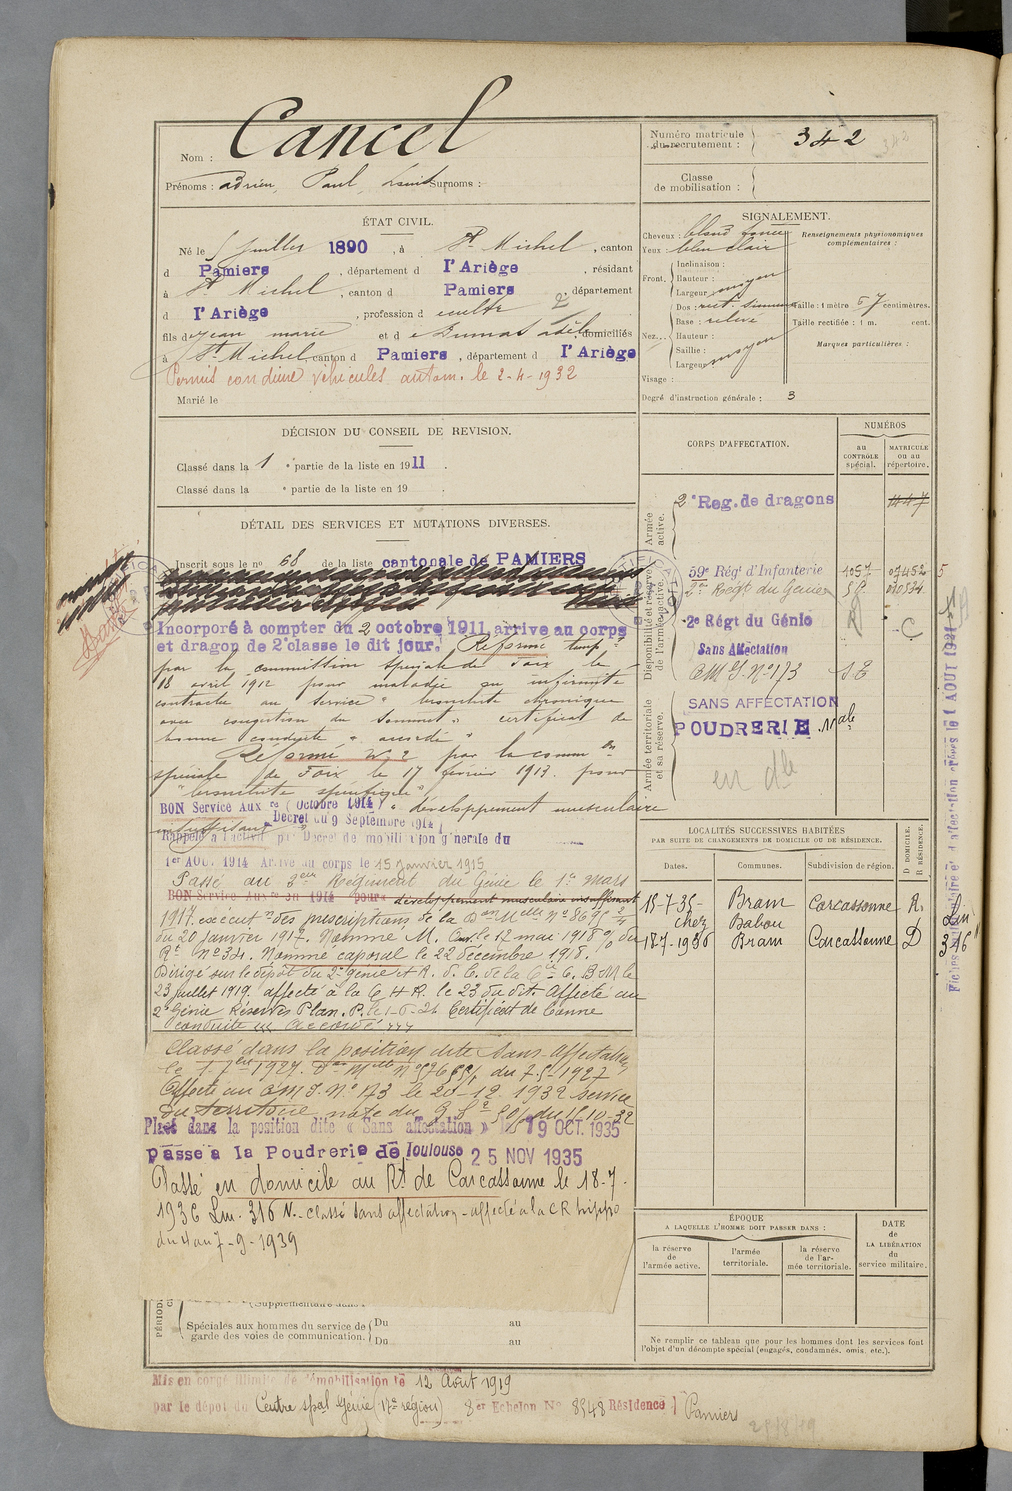 Nom : Cancel
Prénoms : adrien, Paul, Louis Surnoms :
Numéro matricule du recrutement : 342
Classe de mobilisation :
ÉTAT CIVIL.
Né le 5 juillet 1890, à St Michel, canton
d Pamiers, département d l'Ariège, résidant
à St Michel, canton d Pamiers, département
d l'Ariège, profession d cultr
fils de Jean marie et d e Dumas adèle, domiciliés
à St Michel, canton d Pamiers, département d l'Ariège
Permis conduire véhicules autom. le 2-4-1932
Marié le
SIGNALEMENT.
Cheveux : blond foncé
Yeux bleu clair
Front. Inclinaison :
Hauteur : moyen
Largeur
Nez... Dos : rect. sinueux
Base : relevé
Hauteur :
Saillie : moyen
Largeur
Visage :
Degré d'instruction générale : 3
Renseignements physionomiques complémentaires :
Taille : 1 mètre 57 centimètres.
Taille rectifiée : 1 m. cent.
Marques particulières :
DÉCISION DU CONSEIL DE REVISION.
Classé dans la 1e partie de la liste en 1911.
Classé dans la e partie de la liste en 19 .
DÉTAIL DES SERVICES ET MUTATIONS DIVERSES.
Inscrit sous le no 68 de la liste cantonale de PAMIERS
Incorporé à compter du 2 octobre 1911, arrive au corps
et dragon de 2e classe le dit jour. Réformé temp.
par la commission spéciale de Foix le
18 avril 1912 pour maladie ou infirmité
contractée au service "bronchite chronique
avec congestion du sommet" certificat de
bonne conduite "accordé"
Réformé No 2 par la common
spéciale de Foix le 17 février 1913. pour
"bronchite spécifique"
BON Service Auxre (Octobre 1914) "développement musculaire
Decret du 9 Septembre 1914
insuffisant"
Rappelé à l'activité par Décret de mobilisation générale du
1er AOUT 1914 Arrivé au corps le 15 janvier 1915
Passé au 2eme Régiment du Génie le 1er mars
BON Service Auxre en 1914 pour développement musculaire insuffisant
1917. exécution des prescriptions de la Don Melle No 8695 2/4
du 20 Janvier 1917. Nommé M. Ouv. le 12 mai 1918 o/o du
Rt No 34. Nommé caporal le 22 décembre 1918.
Dirigé sur le dépôt du 2e génie et R. d. C. de la Cie C. B M le
23 juillet 1919, affecté à la C H R. le 23 du dit. Affecté au
2e Génie Réserves Plan. P. le 1-6-21 Certificat de bonne
conduite "Accordé"
Classé dans la position dite Sans-Affectation
le 1-7bre 1927. Don Mlle No 5766 5/1 du 7-5-1927
Affecté au OMJ. No 173 le 20-12-1932 service
du territoire, note du
Placé dans la position dite « Sans affectation » le 19 OCT. 1935
passé à la Poudrerie de Toulouse 25 NOV 1935
Passé en domicile au Rt de Carcassonne le 18-7-
1936 Lm. 316 N. - classé sans affectation - affecté à la CR hippo
du 4 au 7-9-1939
(Supplémentaire dans l
Spéciales aux hommes du service de garde des voies de communication.
Du au
Du au
CORPS D'AFFECTATION.
NUMÉROS
au CONTRÔLE spécial.
MATRICULE ou au répertoire.
Armée active.
2e Reg. de dragons 447
Disponibilité et réserve de l'armée active.
59e Régt d'Infanterie 1057 07452
2me Regt du Génie
2e Régt du Génie
Sans Affectation
OMJ. No 173
Armée territoriale et sa réserve.
SANS AFFECTATION
POUDRERIE Nale
en dle
LOCALITÉS SUCCESSIVES HABITÉES
PAR SUITE DE CHANGEMENTS DE DOMICILE OU DE RÉSIDENCE.
Dates. Communes. Subdivision de région. D DOMICILE. R RÉSIDENCE.
15-7-35- Bram Carcassonne R.
chez Babou
18-7-1936 Bram Carcassonne D
Lm
316
ÉPOQUE
A LAQUELLE L'HOMME DOIT PASSER DANS :
la réserve de l'armée active.
l'armée territoriale.
la réserve de l'armée territoriale.
DATE de LA LIBÉRATION du service militaire.
Ne remplir ce tableau que pour les hommes dont les services font
l'objet d'un décompte spécial (engagés, condamnés, omis, etc.).
Mis en congé illimité de démobilisation le 12 Août 1919
par le dépôt du Centre spal Génie (17e région) 8er Echelon No 8548 Résidence Pamiers